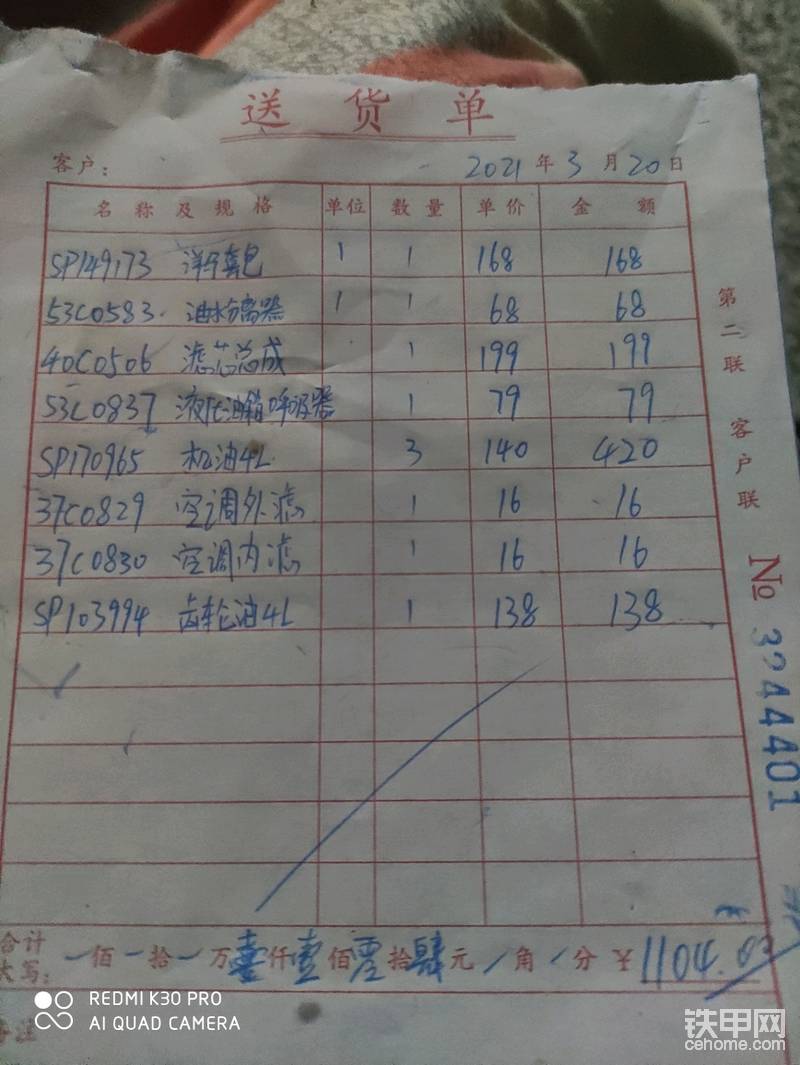 送货单
客户: 2021年3月20日
名称及规格 单位 数量 单价 金额
SP149173 1 1 168 168
53C0583 油水分离器 1 1 68 68
40C0506 滤芯总成 1 199 199
53C0837 液压油箱呼吸器 1 79 79
SP170965 机油4L 3 140 420
37C0829 空调外滤 1 16 16
37C0830 空调内滤 1 16 16
SP103994 齿轮油4L 1 138 138
合计大写: 佰 拾 万壹仟壹佰零拾肆元 角 分 ¥1104.00
备注
第二联 客户联
No 3244401
REDMI K30 PRO
AI QUAD CAMERA
铁甲网
cehome.com